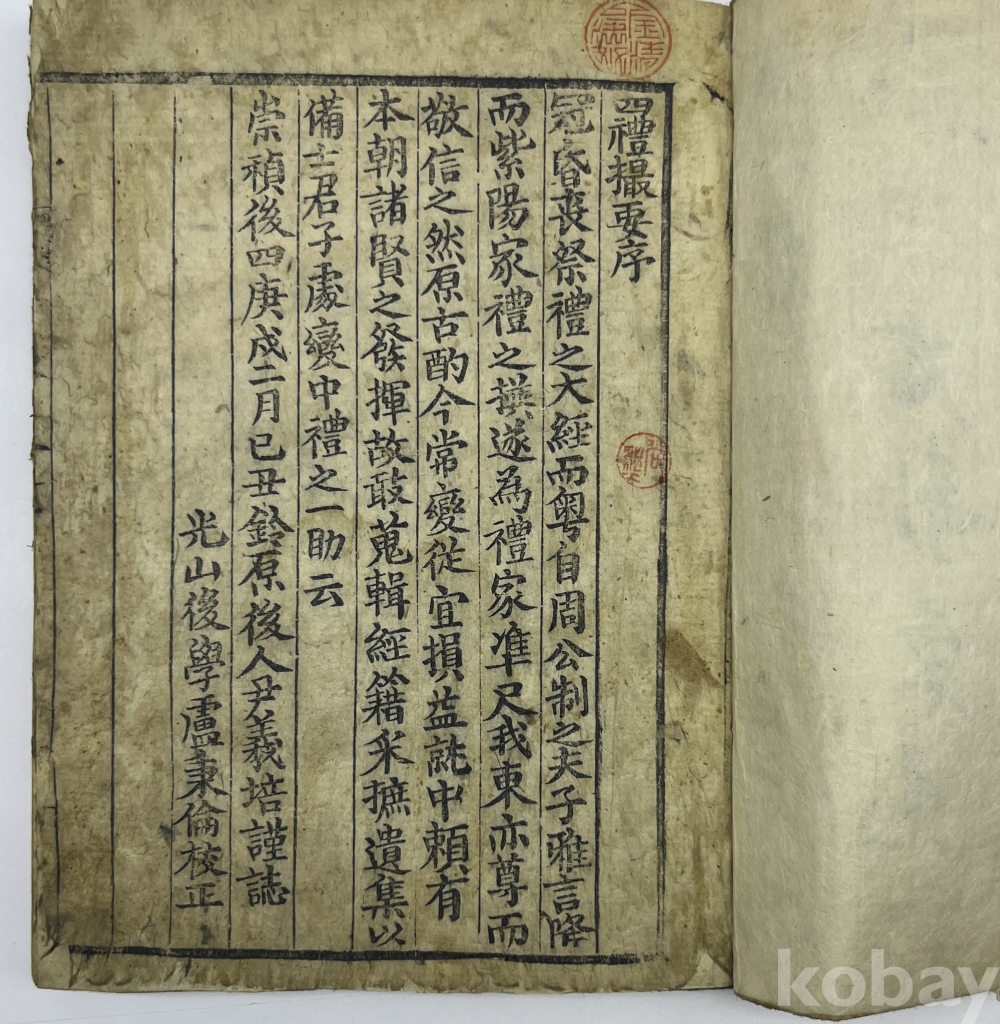 四禮撮要序
冠昏喪祭禮之大經而粤自周公制之夫子雅言降
而紫陽家禮之撰遂為禮家準尺我東亦尊而
敬信之然原古酌今常變從宜損益誂中頼有
本朝諸賢之發揮故敢蒐輯經籍采摭遺集以
備士君子處變中禮之一助云
崇禎後四庚戌二月己丑鈴原後人尹羲培謹誌
光山後學盧秉倫校正
kobay